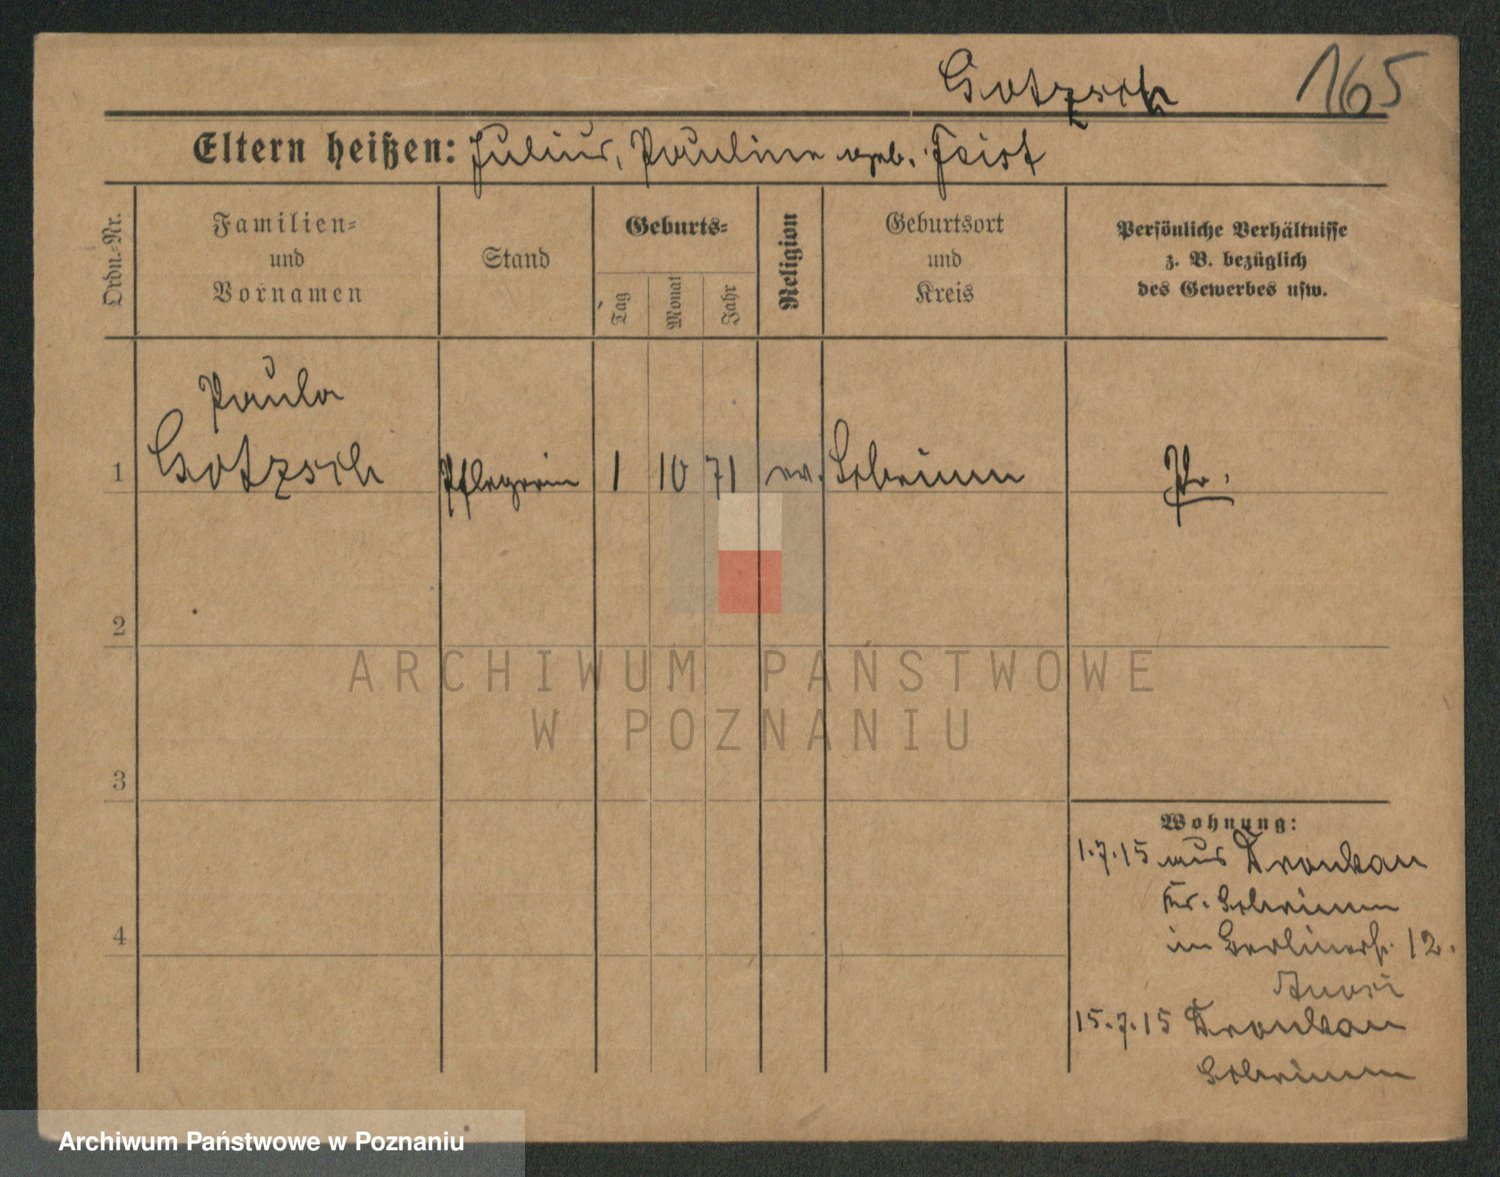 Gotzsch 165
Eltern heißen: Julius, Pauline geb. Feist
Ordn.-Nr.
Familien-
und
Vornamen
Stand
Geburts-
Tag
Monat
Jahr
Religion
Geburtsort
und
Kreis
Persönliche Verhältnisse
z. B. bezüglich
des Gewerbes usw.
Paula
1 Gotzsch Pflegerin 1 10 71 ev. Schrimm Pr.
2
3
4
Wohnung:
1.7.15 aus
Kr. Schrimm
in Berlinerstr. 12.
15.7.15
Schrimm
ARCHIWUM PAŃSTWOWE
W POZNANIU
Archiwum Państwowe w Poznaniu